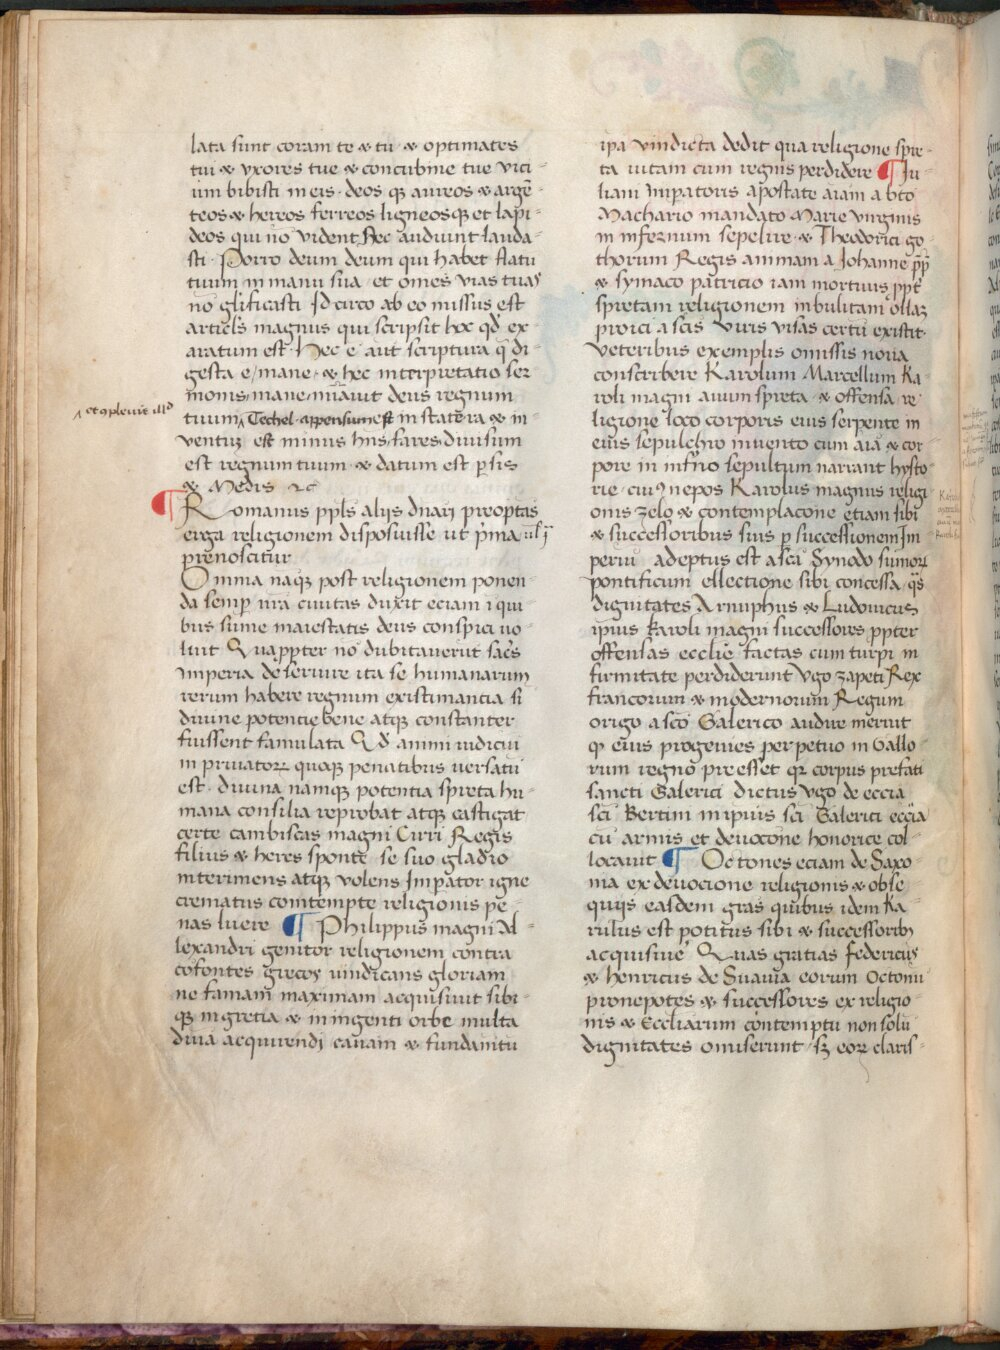 lata sunt coram te & tu & optimates
tui & vxores tue & concubine tue vi<n>ci
um bibisti in eis · deos q3 aureos & argē
teos & hereos ferreos ligneosq3 et lapi
deos qui nō vident Nec audiunt lauda
sti · Porro deum deum qui habet flatū
tuum in manu sua · et om̄es vias tuas
nō gl̄ificasti Idcirco ab eo missus est
articl̄s magnus qui scripsit hoc qd̄ ex
aratum est · Hec ē aūt scriptura q̄ di
gesta ē / mane · & hec interpretatio ser
monis / mane / nūauit deus regnum
tuum, Techel · appensum est in statera & in
et 9pleuit illd
ventū est minus hn̄s / fares / diuisum
est regnum tuum · & datum est p̱sis
& Medis ⁊c̄
¶ Romanus ppl̄s alijs
erga religionem disposuisse ut
prenoscitur
Omnia naq3 post religionem ponen
da semp̱ nr̄a ciuitas duxit eciam ī qui
bus sūme maiestatis decus conspici uo
luit Quapp̱ter nō dubitauerūt sac̄s
imperia deseruire ita se humanarum
rerum habere regnum existimancia si
diuine potencie bene atq3 constanter
fuissent famulata Qd̄ animi iudiciū
in priuatoꝝ quoq3 penatibus versatū
est · diuina namq3 potentia spreta hu
mana consilia reprobat atq3 castigat
certe cambiscas magni Cirri Regis
filius & heres sponte se suo gladio
interimens atq3 volens Imp̱ator igne
crematus contempte religionis pe
nas luere ¶ Philippus magni Al
lexandri genitor religionem contra
cofontes grecos uindicans gloriam
ne famam maximam acquisiuit sibi
q3 in gretia & in ingenti orbe multa
acquirendi cauam & fundamtū
ipa vindicta dedit qua religione spre
ta uitam cum regnis perdidere ¶ Iu
liani Imp̱atoris apostate aīam a bt̄o
Machario mandato Marie virginis
in infernum sepelire · & Theodorici go
thorum Regis animam a Iohanne p̄p̄
& symaco patricio iam mortuis pp̱t
spretam religionem in bulitam ollaꝫ
proici a sc̄is viris visas certū existit ·
veteribus exemplis omissis noua
conscribere Karolum Marcellum Ka
roli magni auum spreta & offensa re
ligione loco corporis eius serpente in
eius sepulchro inuento cum aīa & cor
pore in īnfn̄o sepultum narrant hysto
rie · cui9 nepos Karolus magnus religi
onis zelo & contemplacōne etiam sibi
& successoribus suis p̱ successionem Im
periū adeptus est a sc̄a Synodo sūmoꝝ
pontificum ellectione sibi concessa · q̄s
dignitates Arnuphus & Ludouicus
ipīus Karoli magni successores pp̱ter
offensas ecclīe factas cum turpi in
firmitate perdiderunt Vgo zapeti Rex
francorum & modernorum Regum
origo a sc̄o Galerico audire meruit
ꝙ eius progenies perpetuo in Gallo
rum regno preesset qꝛ corpus prefati
sancti Galerici dictus Vgo de ecc̄ia
sc̄i Bertini in ipīus sc̄i Galerici ecc̄ia
cū armis et deuocōne honorice col
locauit ¶ Octones eciam de Saxo
nia ex deuocione religionis & obse
quijs easdem gr̄as quibus idem Ka
rulus est potitus sibi & successorib3
acquisiuē Quas gratias federicus
& henricus de Suauia eorum Octonū
pronepotes & successores ex religio
nis & Eccl̄iarum contemptu non solū
dignitates omiserunt · sꝫ eoꝝ claris